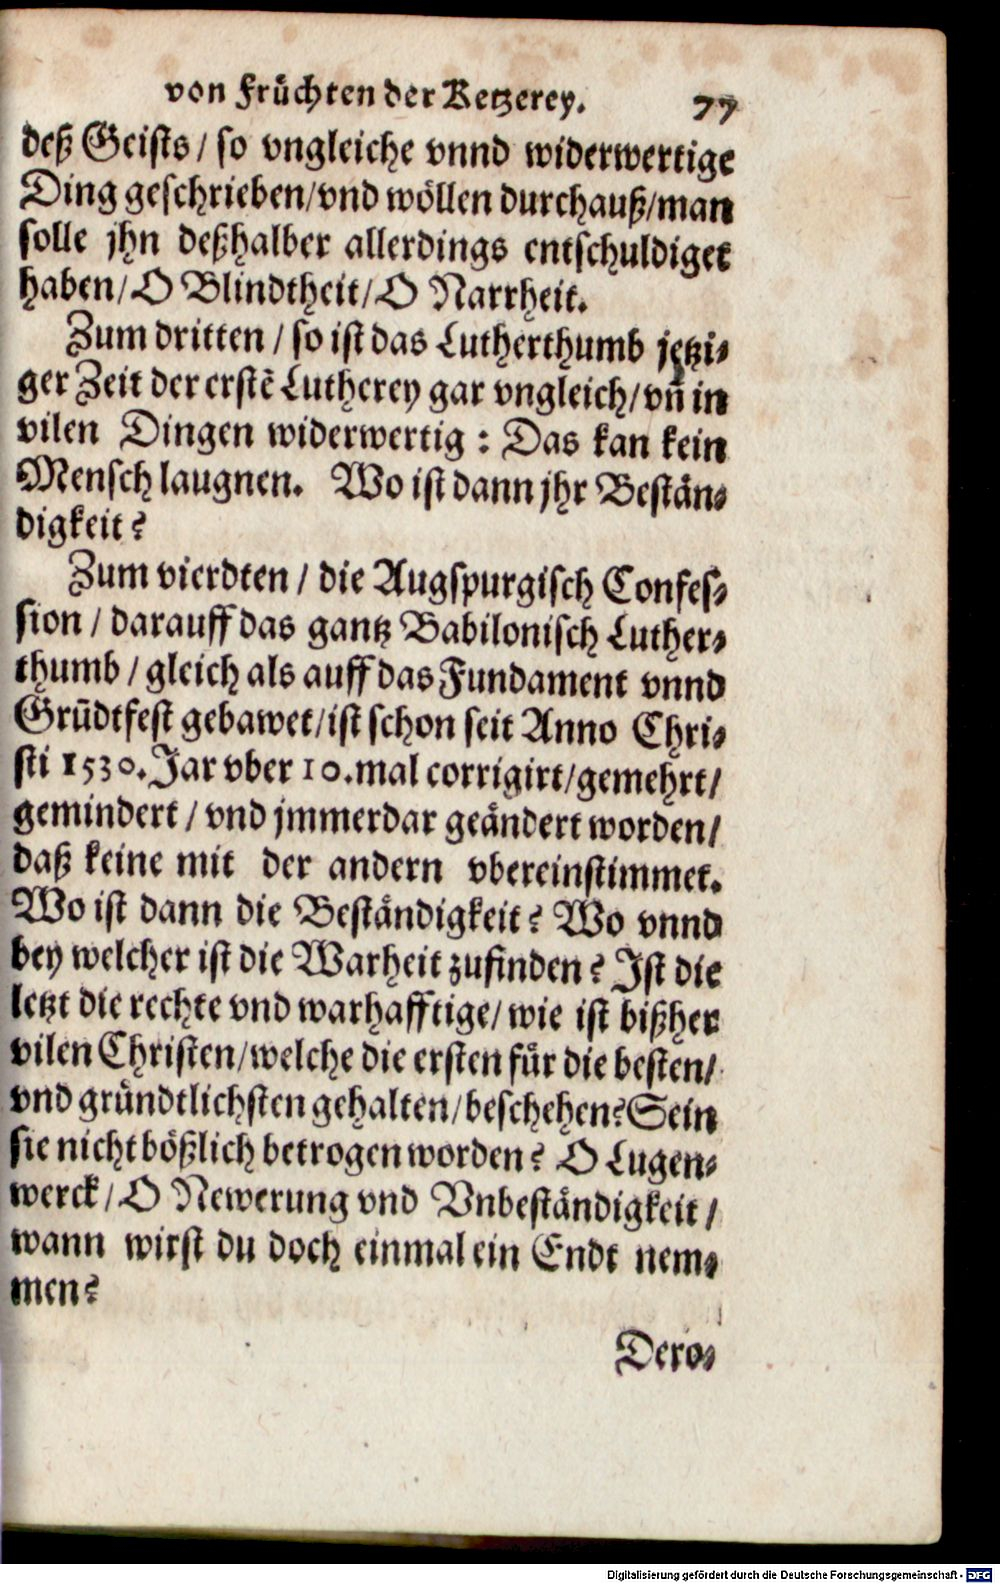 von Früchten der Ketzerey. 77
deß Geists / so vngleiche vnnd widerwertige
Ding geschrieben/vnd wöllen durchauß/man
solle jhn deßhalber allerdings entschuldiget
haben/O Blindtheit/O Narrheit.
Zum dritten / so ist das Lutherthumb jetzi-
ger Zeit der erstē Lutherey gar vngleich/vñ in
vilen Dingen widerwertig : Das kan kein
Mensch laugnen. Wo ist dann jhr Bestän-
digkeit?
Zum vierdten / die Augspurgisch Confes-
sion / darauff das gantz Babilonisch Luther-
thumb / gleich als auff das Fundament vnnd
Grũdtfest gebawet/ist schon seit Anno Chri-
sti 1530. Jar vber 10.mal corrigirt/gemehrt/
gemindert / vnd jmmerdar geändert worden/
daß keine mit der andern vbereinstimmet.
Wo ist dann die Beständigkeit? Wo vnnd
bey welcher ist die Warheit zufinden? Ist die
letzt die rechte vnd warhafftige/ wie ist bißher
vilen Christen/welche die ersten für die besten/
vnd gründtlichsten gehalten/beschehen? Sein
sie nicht bößlich betrogen worden? O Lugen-
werck/O Newerung vnd Vnbeständigkeit /
wann wirst du doch einmal ein Endt nem-
men?
Dero-
Digitalisierung gefördert durch die Deutsche Forschungsgemeinschaft - DFG